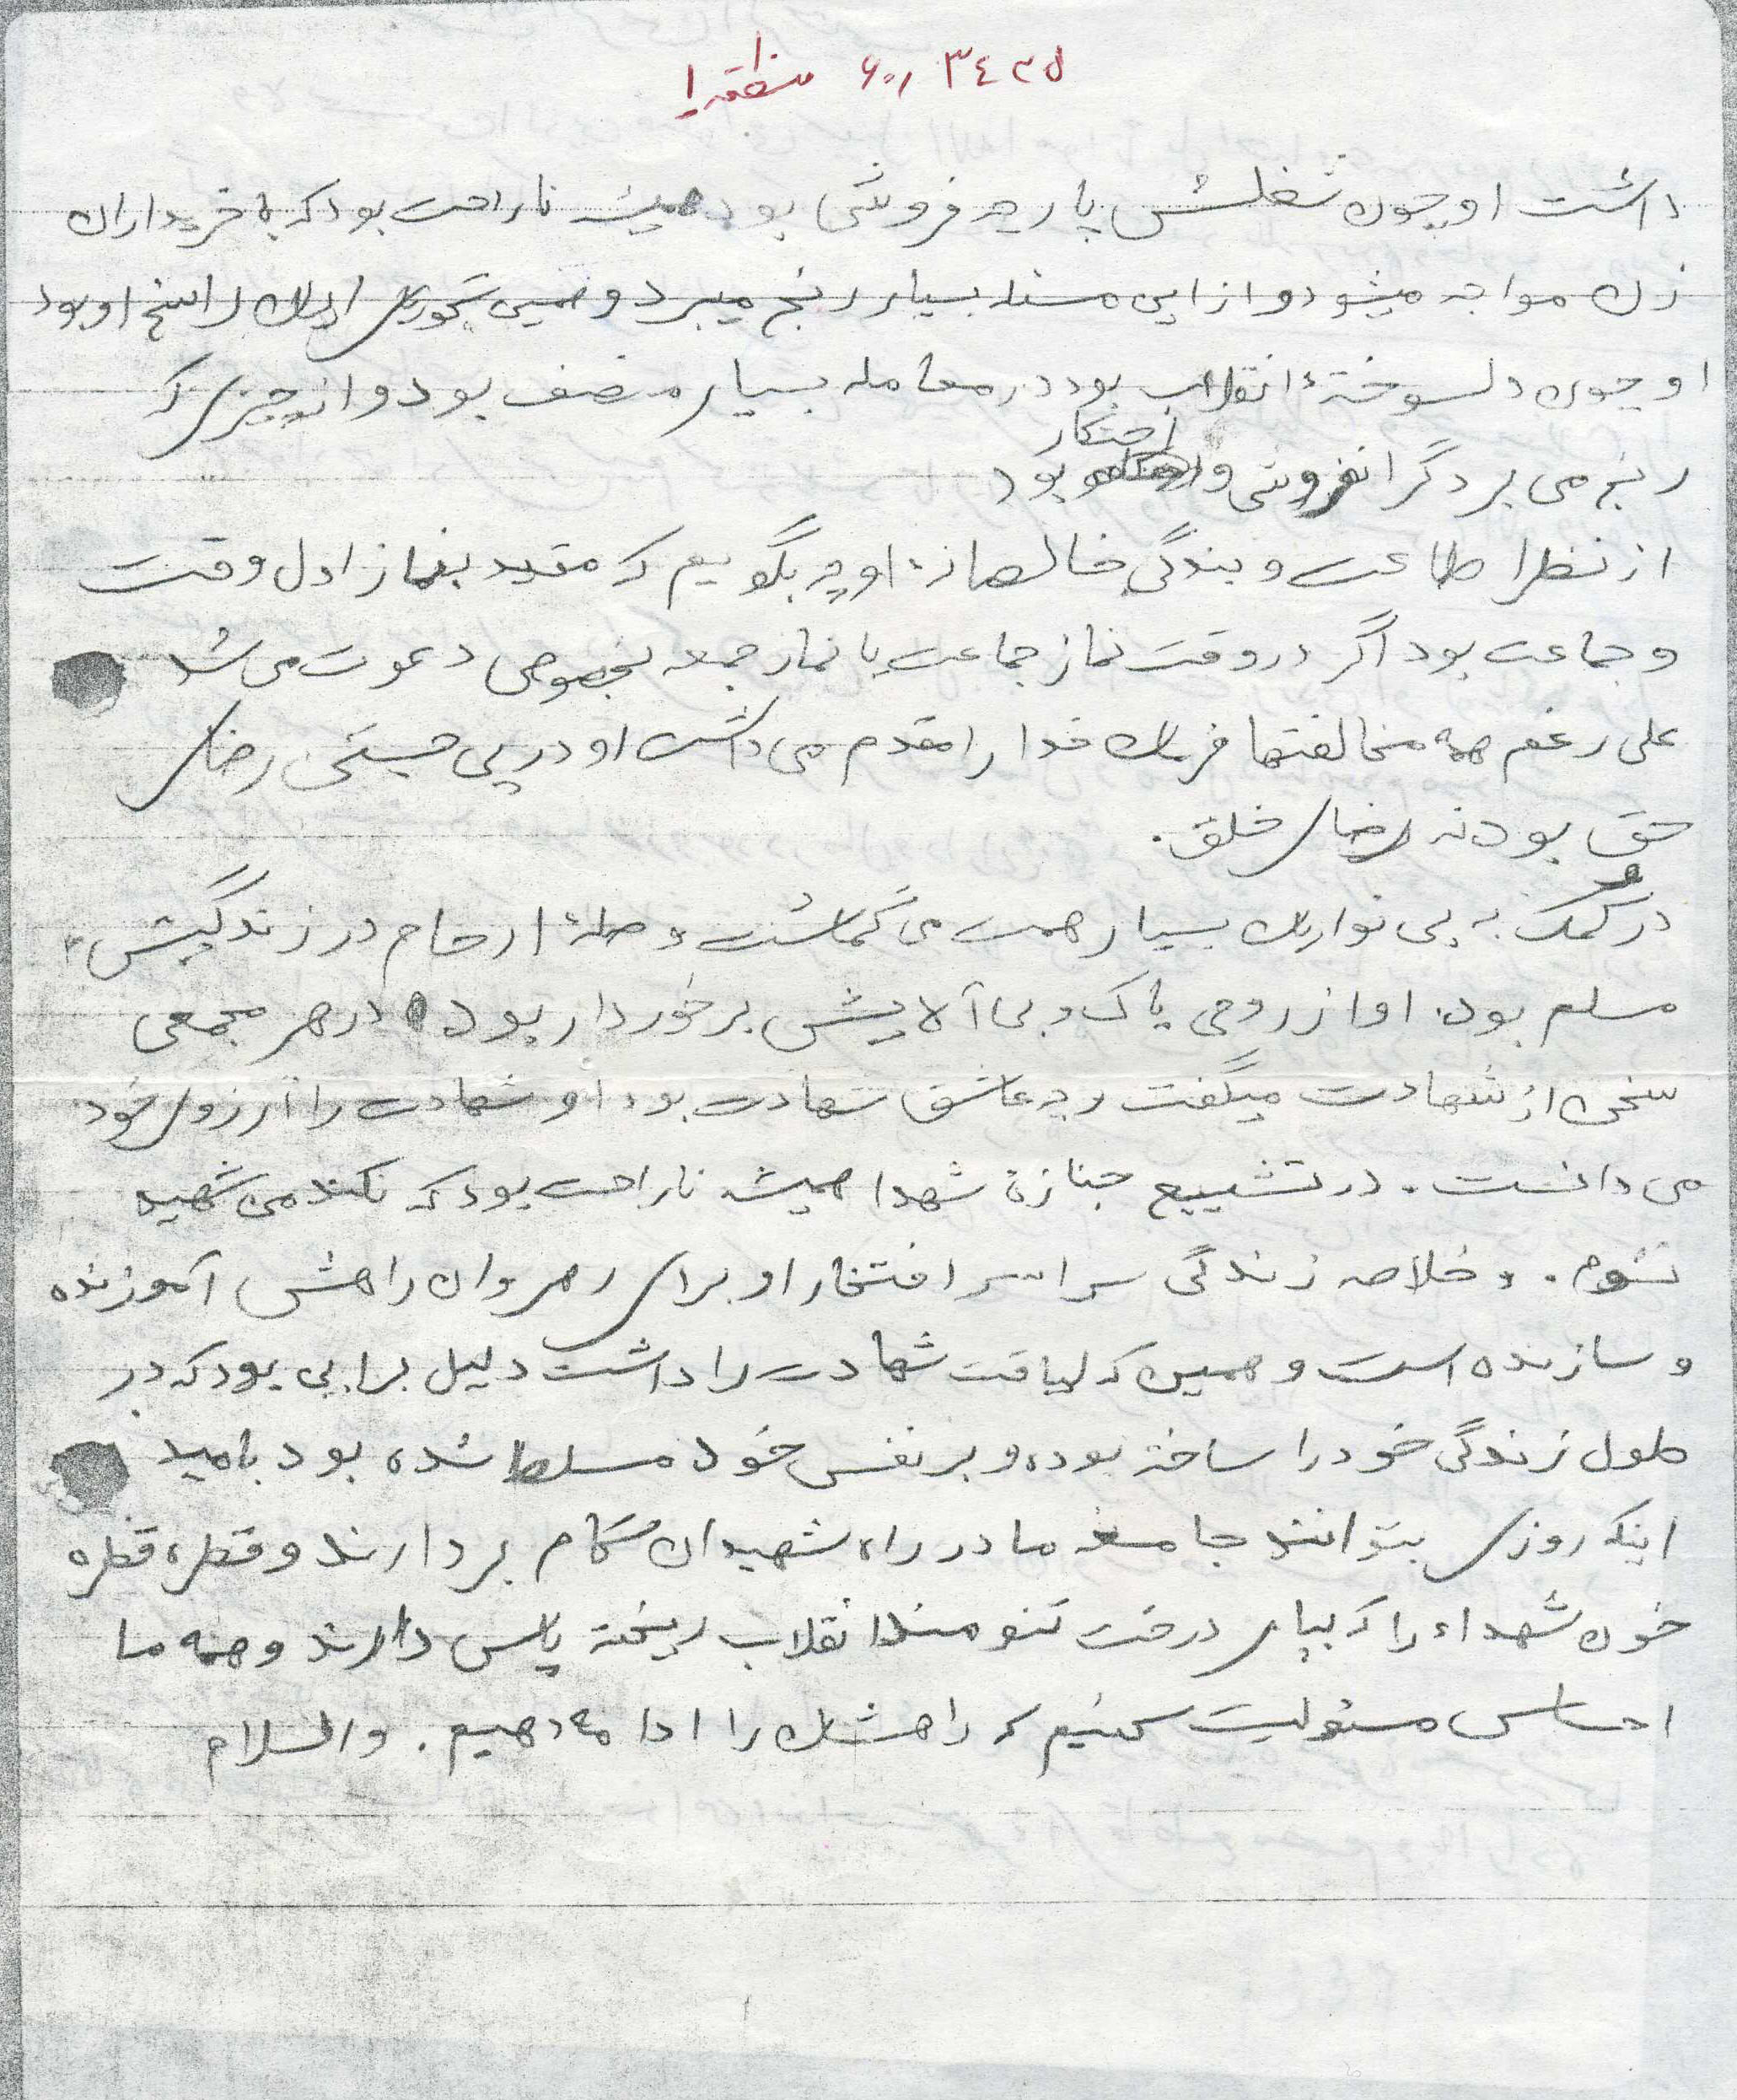 ۶۰۱ ۳۴۲۵ منطقه ۱
داشت او چون شغلش پارچه فروشی بود همیشه ناراحت بود که با خریداران
زن مواجه میشود و از این مسئله بسیار رنج میبرد و همین تجورش ایمان راسخ او بود
او چون دلسوختهٔ انقلاب بود در معامله بسیار منصف بود و از چیزی که
رنج می برد گرانفروشی و احتکار بود
از نظر اطاعت و بندگی خالصانه او چه بگویم که مقید بنماز اول وقت
و جماعت بود اگر در وقت نماز جماعت یا نماز جمعه بخصوصی دعوت می شد
علی رغم همه مخالفتها فرمان خدا را مقدم می داشت او در پی جستن رضای
حق بود نه رضای خلق.
در کمک به بی نوایان بسیار همت می گماشت و صلهٔ ارحام در زندگیش
مسلم بود. او از روحی پاک و بی آلایش برخوردار بود در هر مجمعی
سخن از شهادت میگفت و چه عاشق شهادت بود او شهادت را آرزوی خود
می دانست. در تشییع جنازهٔ شهدا همیشه ناراحت بود که نکند من شهید
نشوم. و خلاصه زندگی سراسر افتخار او برای رهروان راهش آموزنده
و سازنده است و همین که لیاقت شهادت را داشت دلیل براین بود که در
طول زندگی خود را ساخته بوده و بر نفس خود مسلط شده بود بامید
اینکه روزی بتوانند جامعه ما در راه شهیدان گام بردارند و قطره قطره
خون شهداء را که بپای درخت تنومند انقلاب ریخته پاس دارند و همه ما
احساس مسئولیت کنیم که راهشان را ادامه دهیم. والسلام